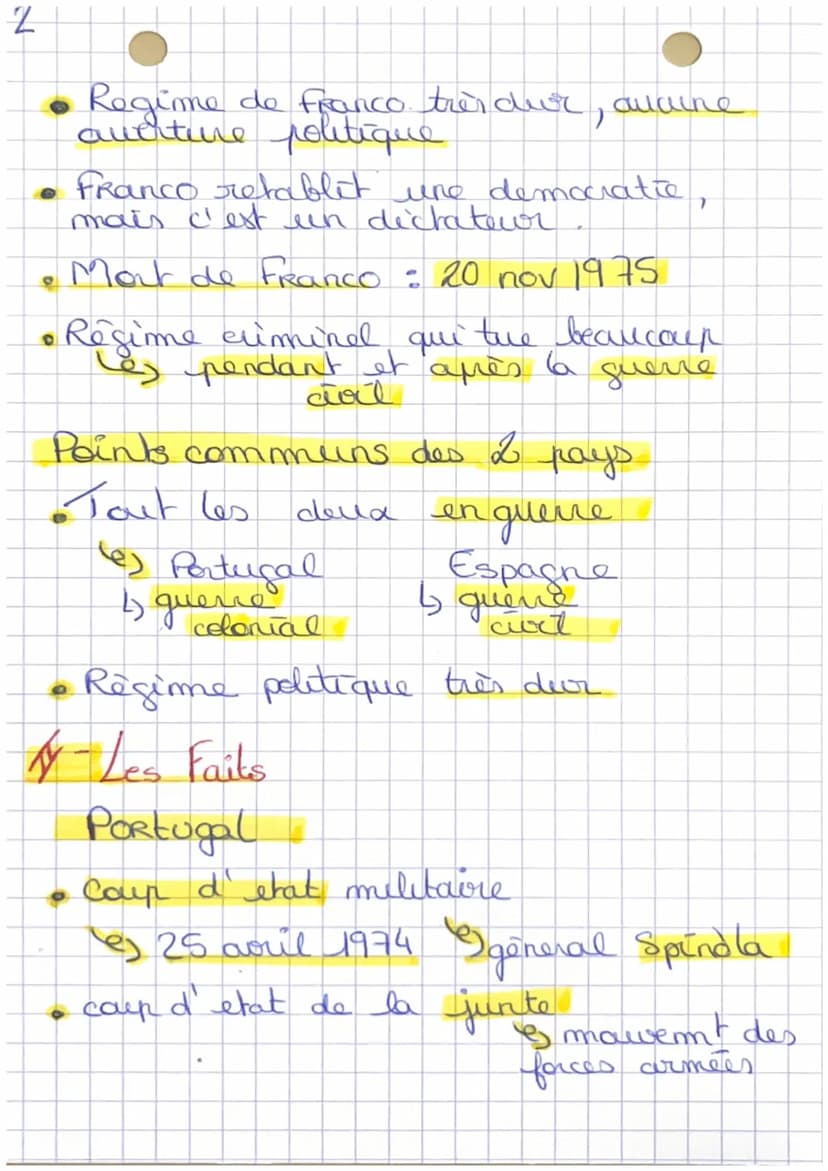 2
• Regime de Franco très dur, aucune
ouverture politique
• Franco retablit une democratie,
mais c'est un dictateur.
• Mort de Franco : 20 nov 1975
• Régime criminel qui tue beaucoup
↳ pendant et après la guerre
civil
Points communs des 2 pays
• Tout les deux en guerre
↳ Portugal Espagne
↳ guerre ↳ guerre
colonial civil
• Régime politique très dur
- Les Faits
Portugal
• Coup d'etat militaire
↳ 25 avril 1974 ↳ géneral Spinola
• coup d'etat de la junte
↳ mouvemt des
forces armées